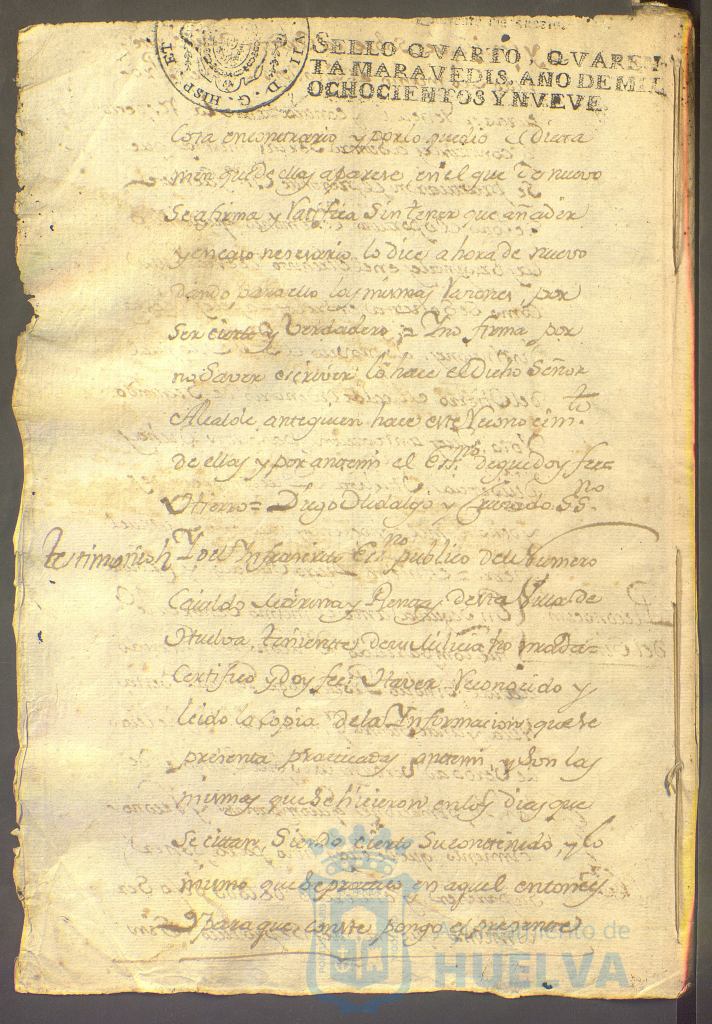 VII. D. G. HISP. ET
SELLO QVARTO, QVAREN-
TA MARAVEDIS, AÑO DE MIL
OCHOCIENTOS Y NVEVE.
Cosa en contrario y por lo que dio el dicta
men que de ellas aparese en el que de nuevo
Se afirma y Ratifica Sin tener que añadir
y en caso nesesario lo dice ahora de nuevo
dando para ello las mismas Razones por
Ser cierto y Verdadero, y no firma por
no Saver escriver lo hace el Dicho Señor
Alcalde, ante quien hace este Reconocim.to
de ellas y por antemi el Es.no de que doy fee=
Otierro= Diego Hidalgo y Jurado SS.no
testimonio Yo el Infrascrito Es.no publico del Numero
de esta Villa de
Huelva, teniente de su Milicia
Certifico y doy fee: Haver Reconosido y
leido la Copia de la Informacion que se
presenta practicada antemi, y Son las
mismas que Se hicieron en los dias que
Se citan, Siendo cierto Su contenido, y lo
mismo que Se practico en aquel entonces
Y para que conste pongo el presente
Ayuntamiento de
HUELVA